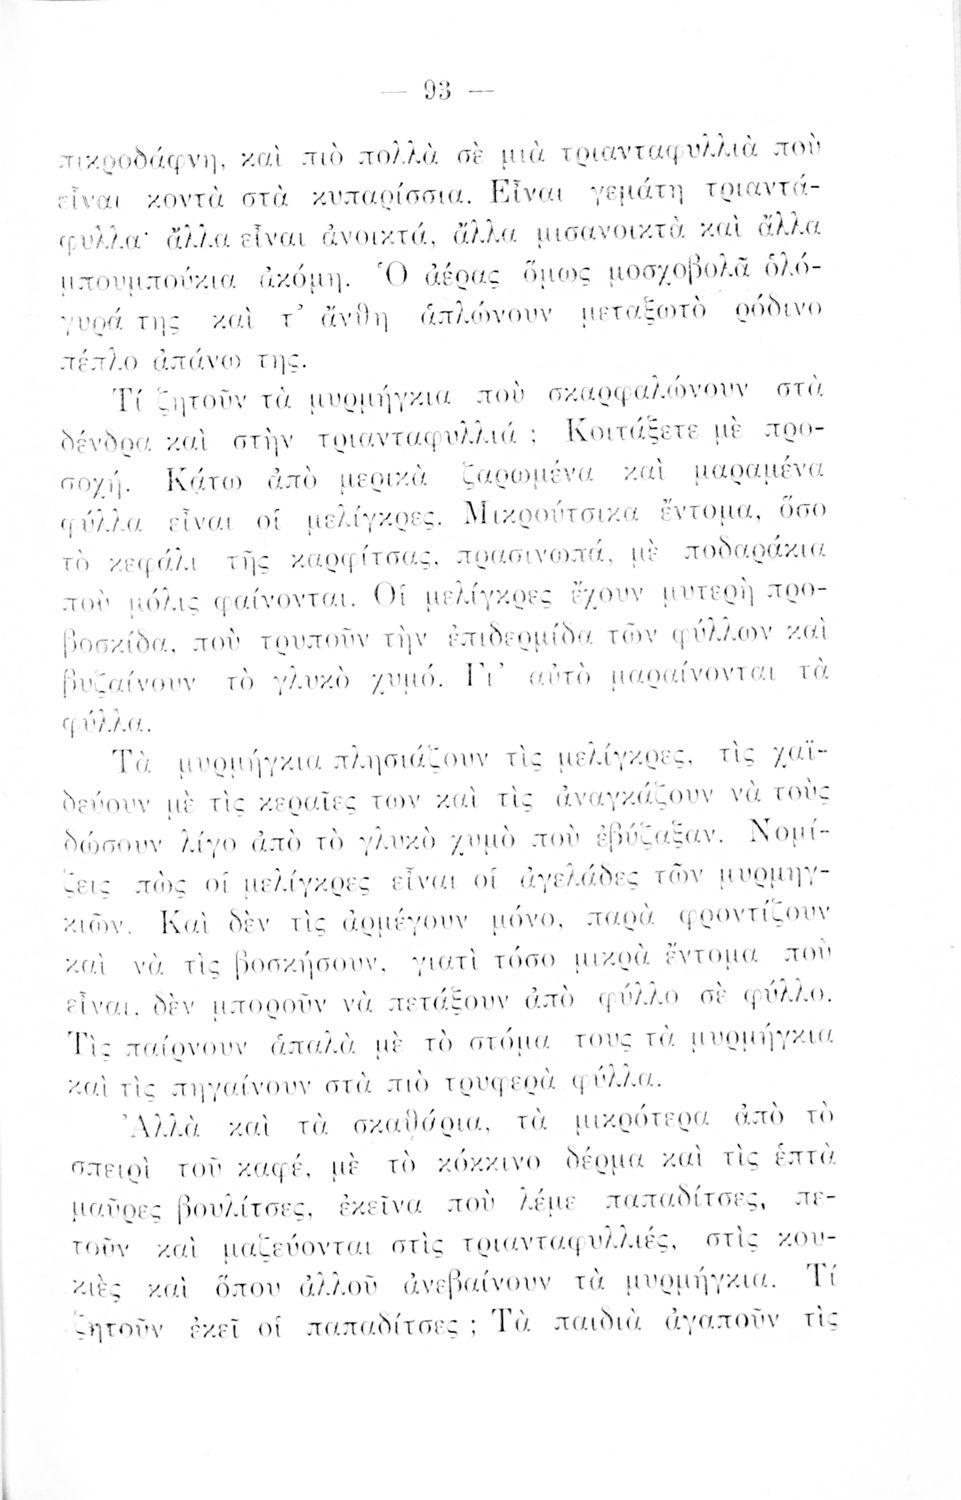 — 93 —
πικροδάφνη, καὶ πιὸ πολλὰ σὲ μιὰ τριανταφυλλιὰ ποὺ
εἶναι κοντὰ στὰ κυπαρίσσια. Εἶναι γεμάτη τριαντά-
φυλλα· ἄλλα εἶναι ἀνοικτά, ἄλλα μισανοικτὰ καὶ ἄλλα
μπουμπούκια ἀκόμη. Ὁ ἀέρας ὅμως μοσχοβολᾶ ὁλό-
γυρά της καὶ τ’ ἄνθη ἁπλώνουν μεταξωτὸ ρόδινο
πέπλο ἀπάνω της.
Τί ζητοῦν τὰ μυρμήγκια ποὺ σκαρφαλώνουν στὰ
δένδρα καὶ στὴν τριανταφυλλιά ; Κοιτάξετε μὲ προ-
σοχή. Κάτω ἀπὸ μερικὰ ζαρωμένα καὶ μαραμένα
φύλλα εἶναι οἱ μελίγκρες. Μικρούτσικα ἔντομα, ὅσο
τὸ κεφάλι τῆς καρφίτσας, πρασινωπά, μὲ ποδαράκια
ποὺ μόλις φαίνονται. Οἱ μελίγκρες ἔχουν μυτερὴ προ-
βοσκίδα, ποὺ τρυποῦν τὴν ἐπιδερμίδα τῶν φύλλων καὶ
βυζαίνουν τὸ γλυκὸ χυμό. Γι’ αὐτὸ μαραίνονται τὰ
φύλλα.
Τὰ μυρμήγκια πλησιάζουν τὶς μελίγκρες, τὶς χαϊ-
δεύουν μὲ τὶς κεραῖες των καὶ τὶς ἀναγκάζουν νὰ τοὺς
δώσουν λίγο ἀπὸ τὸ γλυκὸ χυμὸ ποὺ ἐβύζαξαν. Νομί-
ζεις πὼς οἱ μελίγκρες εἶναι οἱ ἀγελάδες τῶν μυρμηγ-
κιῶν. Καὶ δὲν τὶς ἀρμέγουν μόνο, παρὰ φροντίζουν
καὶ νὰ τὶς βοσκήσουν, γιατὶ τόσο μικρὰ ἔντομα ποὺ
εἶναι, δὲν μποροῦν νὰ πετάξουν ἀπὸ φύλλο σὲ φύλλο.
Τὶς παίρνουν ἁπαλὰ μὲ τὸ στόμα τους τὰ μυρμήγκια
καὶ τὶς πηγαίνουν στὰ πιὸ τρυφερὰ φύλλα.
Ἀλλὰ καὶ τὰ σκαθάρια, τὰ μικρότερα ἀπὸ τὸ
σπειρὶ τοῦ καφέ, μὲ τὸ κόκκινο δέρμα καὶ τὶς ἑπτὰ
μαῦρες βουλίτσες, ἐκεῖνα ποὺ λέμε παπαδίτσες, πε-
τοῦν καὶ μαζεύονται στὶς τριανταφυλλιές, στὶς κου-
κιὲς καὶ ὅπου ἀλλοῦ ἀνεβαίνουν τὰ μυρμήγκια. Τί
ζητοῦν ἐκεῖ οἱ παπαδίτσες ; Τὰ παιδιὰ ἀγαποῦν τὶς